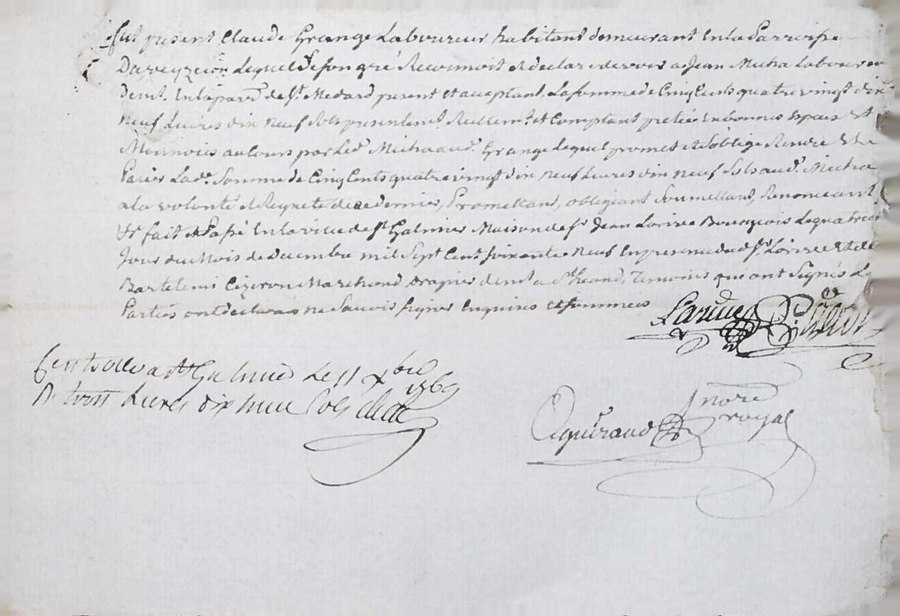 fut present Claude Grange Laboureur habitant demeurant En la Parroisse
Daveyzieu Lequel de son gré Reconnoit et declare devoir a Jean Micha Laboureur
demt. En la parr. de St. Medard present et acceptant La somme de Cinq Cents quatre vingt dix
neuf Livres dix neuf Sols presentemt. Réellemt. et Comptant pretée En bonnes Especes Et
Monnoies au cours par Led. Micha aud. Grange Lequel promet et s'oblige Rendre Et
Paier Lad. Somme de Cinq Cents quatre vingt dix neuf Livres dix neuf Sols aud. Micha
a la volonté et Requete de ce dernier, Promettant, obligeant Soumettant, Renonceant
Et fait et Passé En la ville de St. Galmier Maison de Sr. Jean Lorive Bourgeois Le quatre
Jour du Mois de Decembre mil Sept Cent Soixante Neuf En presence dud. Sr. Lorive et de
Bartelemi Cizeron Marchand drapier demt. a St. Heand, Temoins qui ont Signés Les
Parties ont declaré ne Scavoir signer Enquises et sommées
Controllé a St. Galmier Le 11 Xbre 1769
R. trois Livres dix huit Sols
nore.
royal